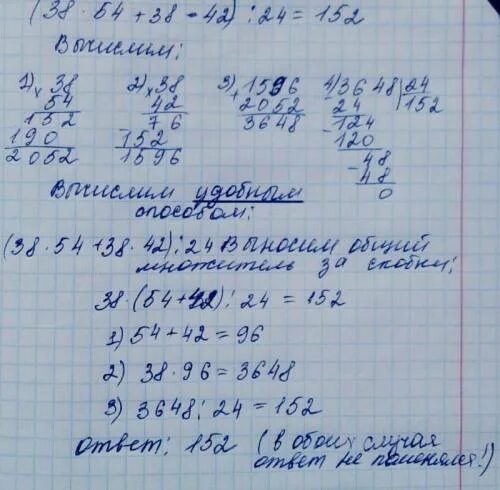 (38 · 54 + 38 · 42) : 24 = 152
Вычислим:
1) × 38
54
152
190
2052
2) × 38
42
76
152
1596
3) + 1596
2052
3648
4) 3648 | 24
24 | 152
- 124
120
- 48
48
0
Вычислим удобным
способом:
(38 · 54 + 38 · 42) : 24 Выносим общий
множитель за скобки:
38 · (54 + 42) : 24 = 152
1) 54 + 42 = 96
2) 38 · 96 = 3648
3) 3648 : 24 = 152
ответ: 152 (в обоих случая
ответ не поменялся!)